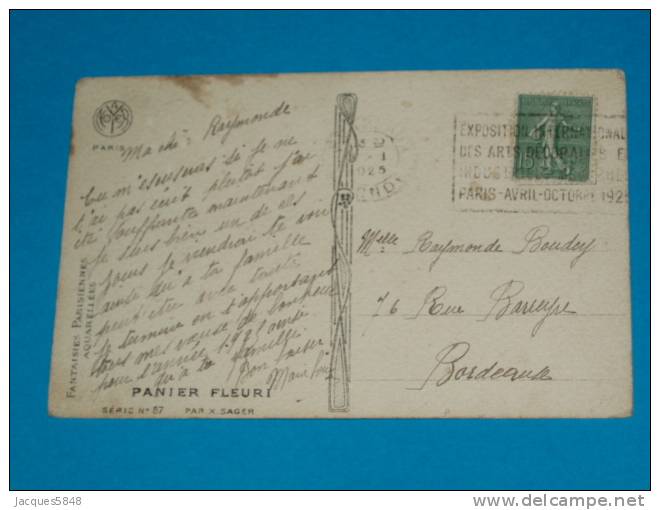 PARIS
Ma chè Raymonde
Tu m'excuseras si je ne
t'ai pas écrit plutôt j'ai
été souffrante maintenant
je suis bien un de ces
jours je viendrai te voir
ainsi qu'à ta famille
peut être avec tante
Je termine en t'apportant
tous mes vœux de bonheur
pour l'année 1921 ainsi
qu'à ta famille
Bon baiser
Marie
FANTAISIES PARISIENNES
AQUARELLÉES
PANIER FLEURI
SÉRIE No 87 PAR X. SAGER
1925
EXPOSITION INTERNATIONAL
DES ARTS DÉCORATIFS E
PARIS-AVRIL-OCTOBRE 192
15
Melle Raymonde Boudey
76 Rue Barreyre
Bordeaux
Jacques5848
www.delcampe.net